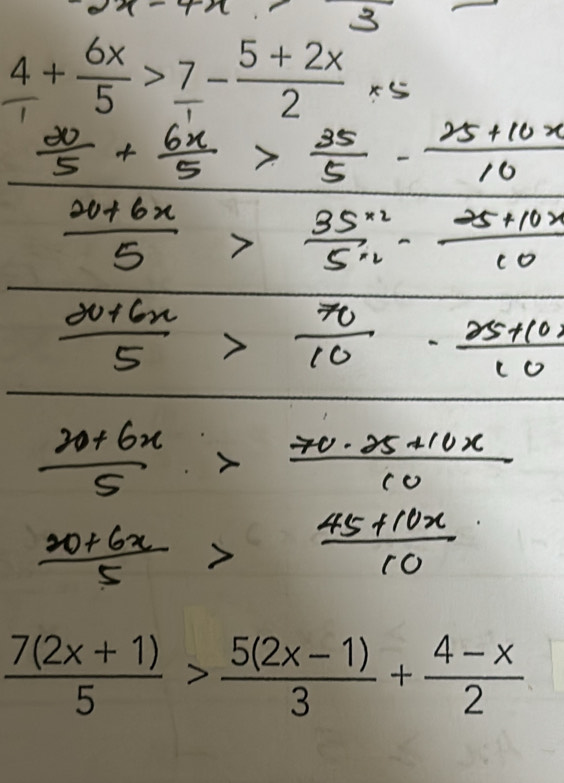 3
4 + 6x/5 > 7 - (5 + 2x)/2 ×5
20/5 + 6x/5 > 35/5 - (25+10x)/10
(20+6x)/5 > 35×2/5×2 - (25+10x)/10
(20+6x)/5 > 70/10 - (25+10x)/10
(20+6x)/5 > (70-25+10x)/10
(20+6x)/5 > (45+10x)/10
7(2x + 1)/5 > 5(2x - 1)/3 + (4 - x)/2